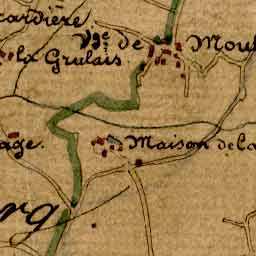 cardière
Vge de Moul
la Grulais
age.
Maison de la
rg